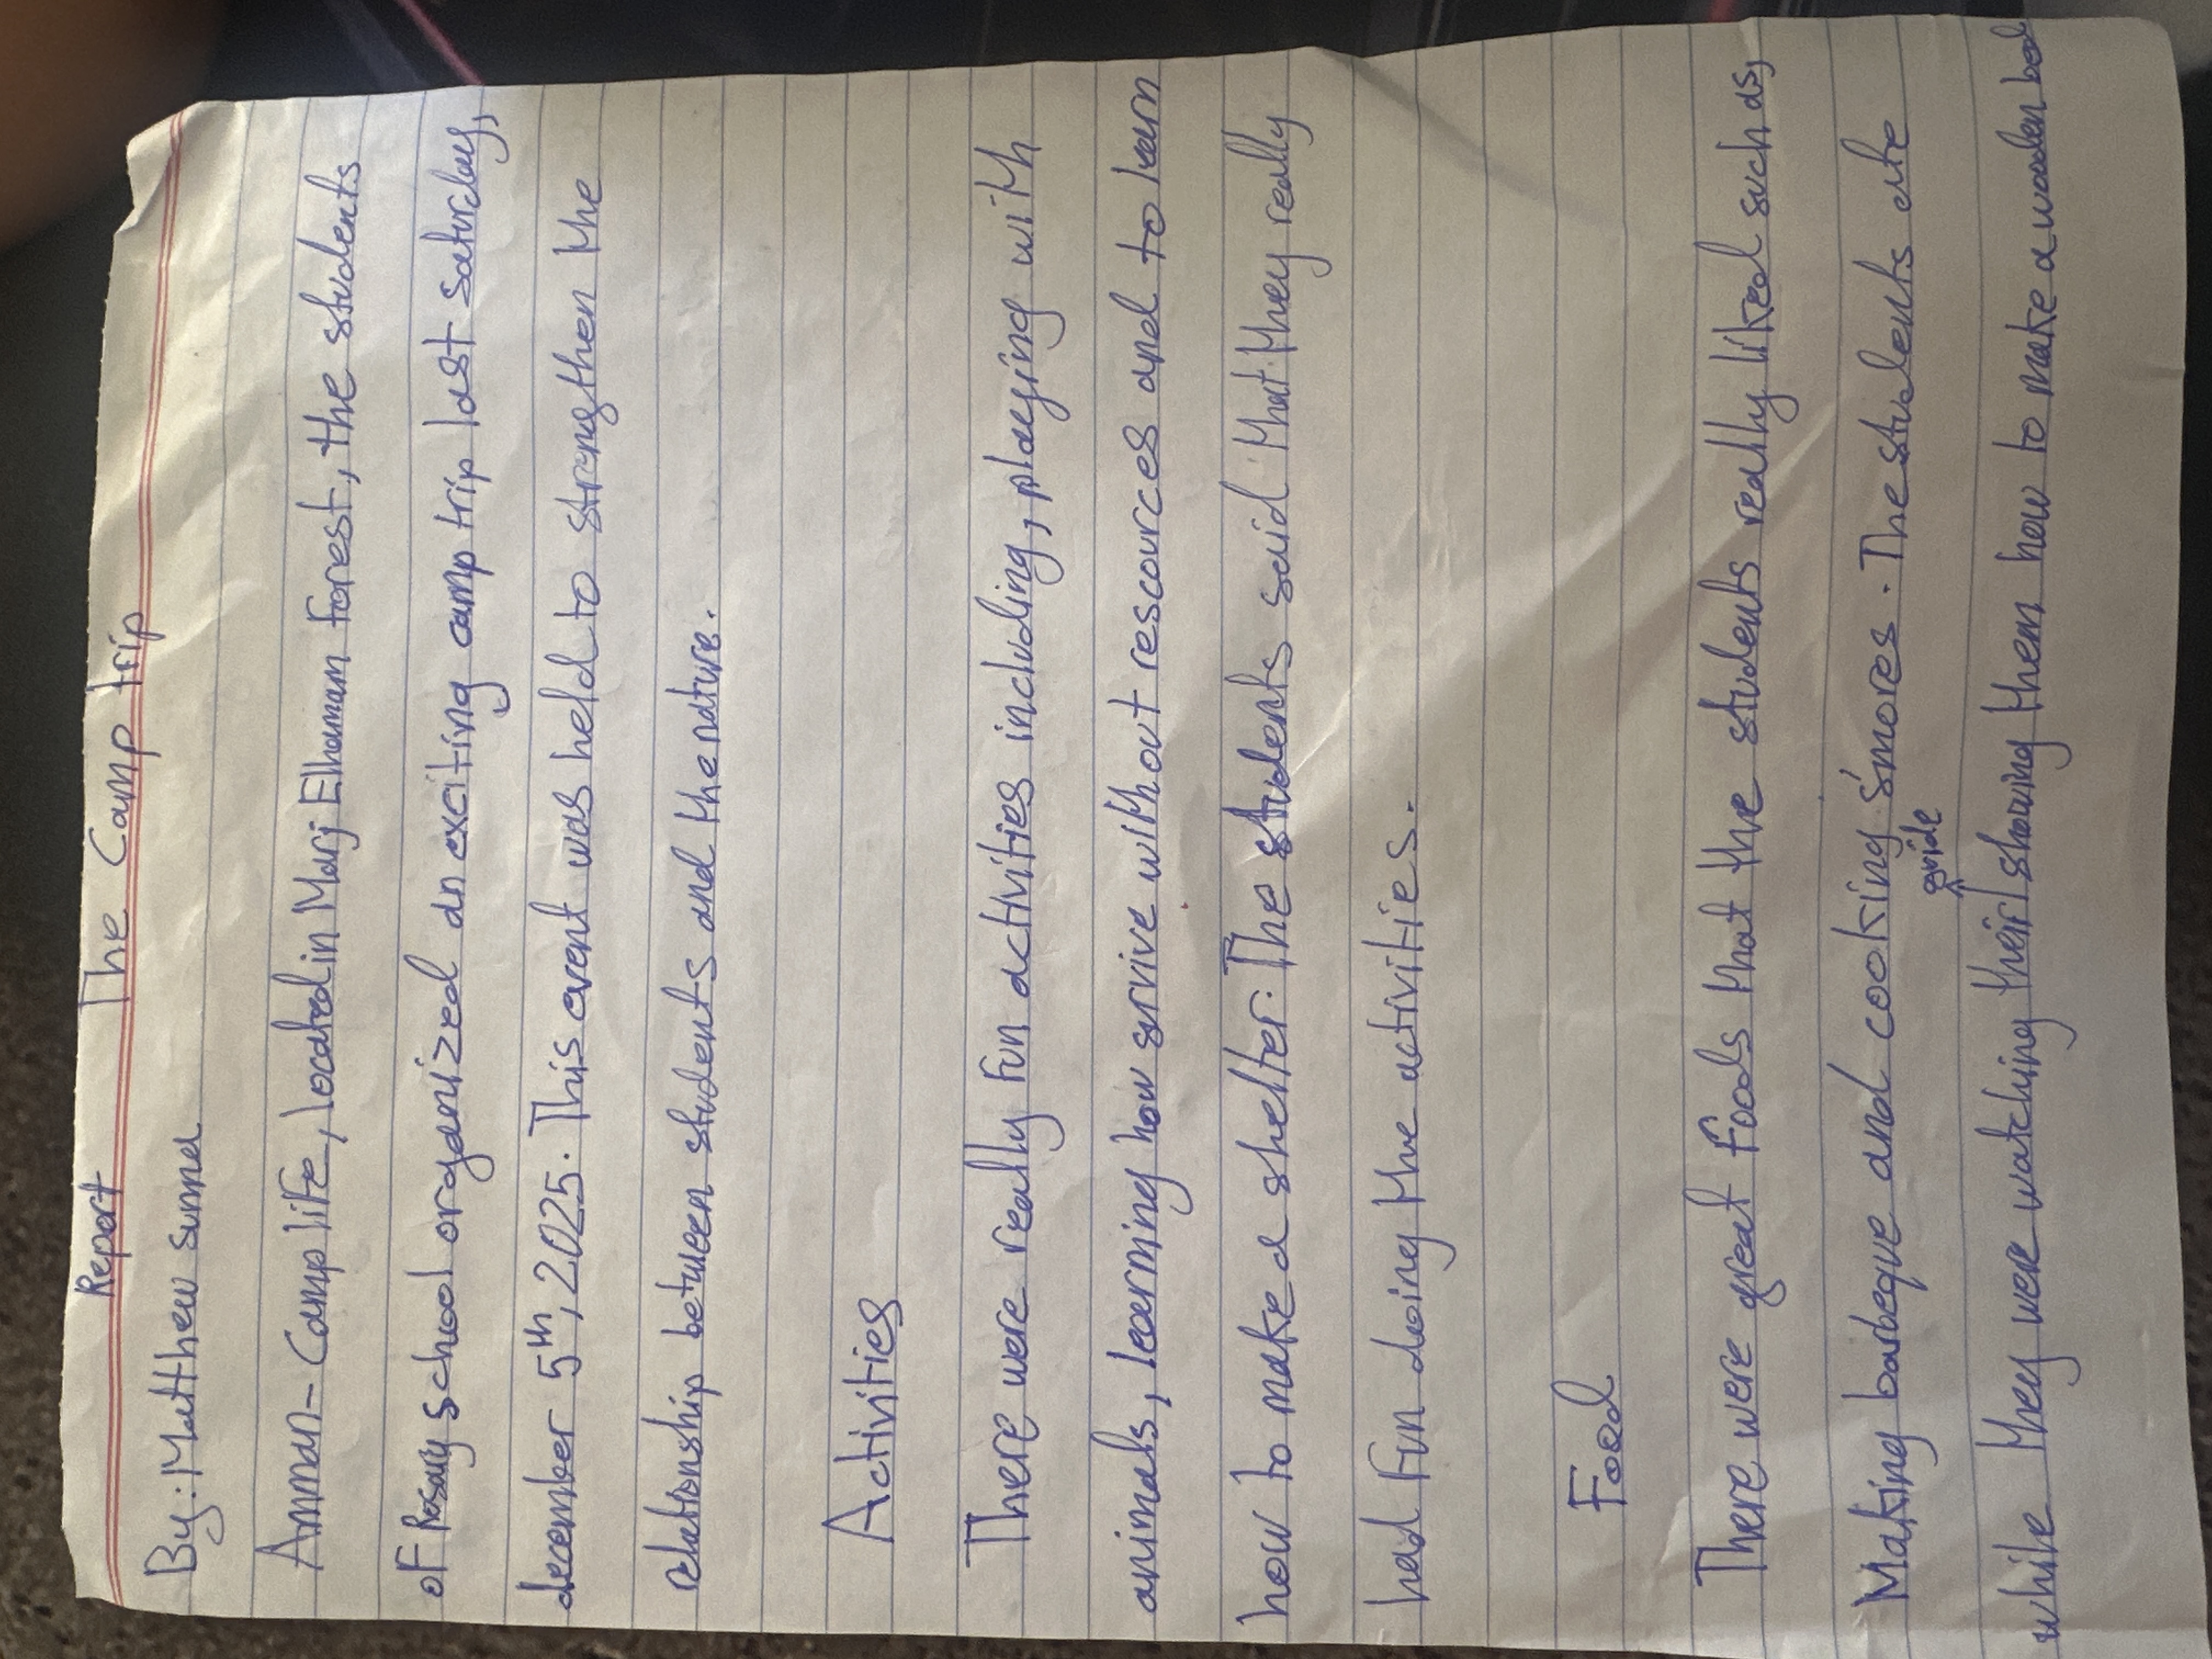 Report The Camp trip
By: Matthew sunna
Amman - Camp life, located in Marj Elhamam forest, the students
of Rosary school organized an exciting camp trip last saturday,
december 5th, 2025. This event was held to strengthen the
relationship between students and the nature.
Activities
There were really fun activities including, playing with
animals, learning how survive without rescources and to learn
how to make a shelter. The students said that they really
had fun doing the activities.
Food
There were great foods that the students really liked such as,
Making barbeque and cooking s'mores. The students ate
guide
while they were watching their showing them how to make a wooden bed